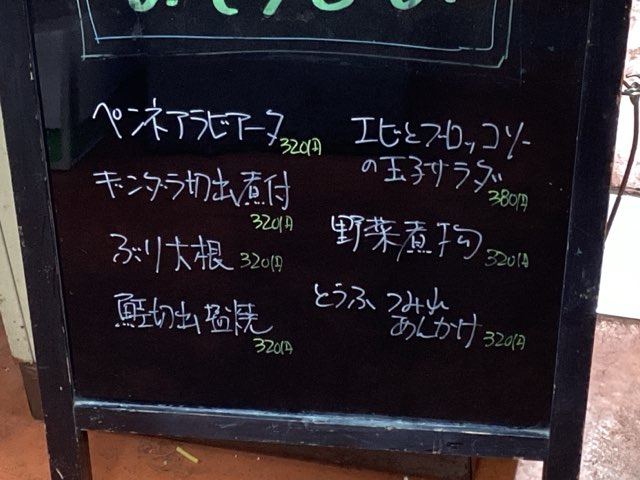 ペンネアラビアータ
320円
ギンダラ切出煮付
320円
ぶり大根 320円
鮭切出塩焼
320円
エビとブロッコリー
の玉子サラダ
380円
野菜煮物
320円
とうふ つみれ
あんかけ 320円